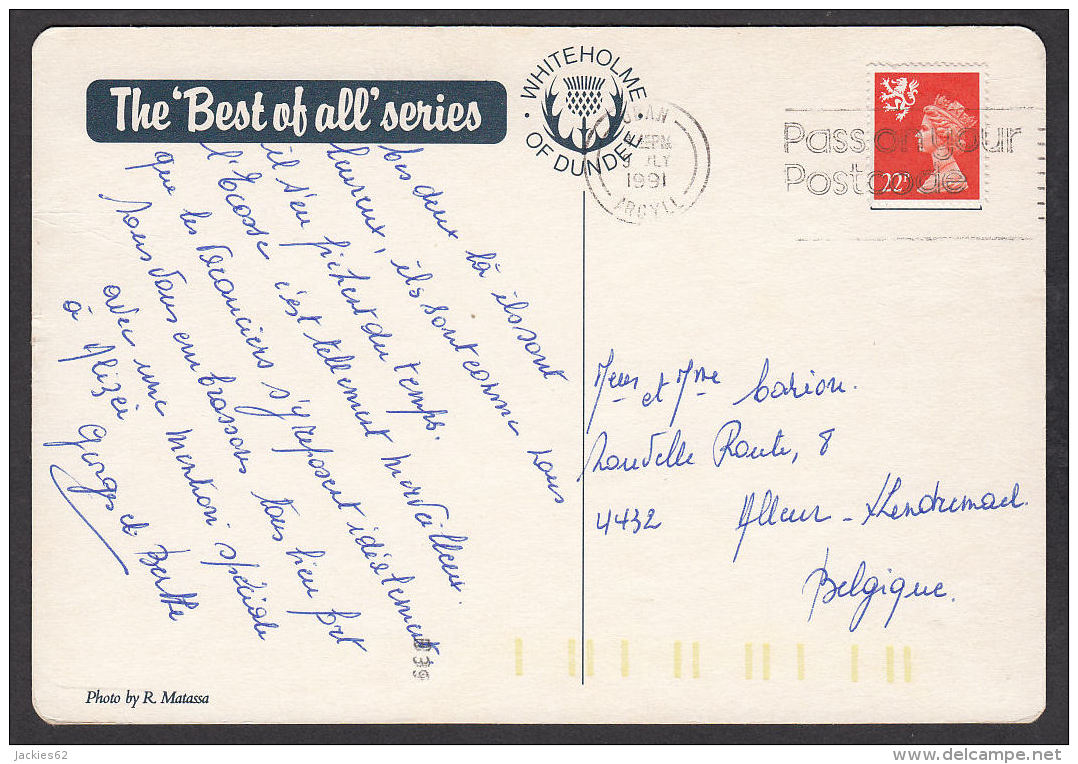 The 'Best of all' series
WHITEHOLME
OF DUNDEE
OBAN
JLY
1991
ARGYLL
Pass on your
Postcode
22P
Ces deux là ils sont
heureux, ils sont comme nous
il s'en fichent du temps.
l'Ecosse c'est tellement merveilleux
que les vacanciers s'y reposent
Nous vous embrassons tous bien fort
avec une mention spéciale
à Alizée
Georges et Berthe
et Mme Carion.
Route, 8
4432 Alleur -
Belgique.
Photo by R. Matassa
jackies62
www.delcampe.net